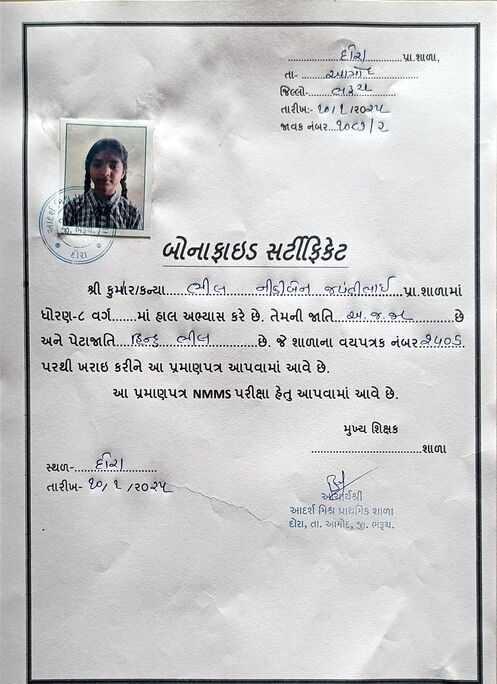 દોરા પ્રા.શાળા,
તા- આમોદ
જિલ્લો- ભરૂચ
તારીખ:- ૧૦/૧/૨૦૨૫
જાવક નંબર ૧૦૭/૨
આદર્શ
જી. ભરૂચ.
દોરા
બોનાફાઇડ સર્ટીફિકેટ
શ્રી કુમાર/કન્યા ભીલ નિધીબેન જયંતીભાઈ પ્રા.શાળામાં
ધોરણ-૮ વર્ગ......માં હાલ અભ્યાસ કરે છે. તેમની જાતિ અ.જ.જા છે
અને પેટાજાતિ હિન્દુ ભીલ છે. જે શાળાના વયપત્રક નંબર ૨૫૦૬
પરથી ખરાઇ કરીને આ પ્રમાણપત્ર આપવામાં આવે છે.
આ પ્રમાણપત્ર NMMS પરીક્ષા હેતુ આપવામાં આવે છે.
મુખ્ય શિક્ષક
શાળા
સ્થળ- દોરા
તારીખ- ૧૦/૧/૨૦૨૫
આચાર્યશ્રી
આદર્શ મિશ્ર પ્રાથમિક શાળા
દોરા, તા. આમોદ, જી. ભરૂચ.